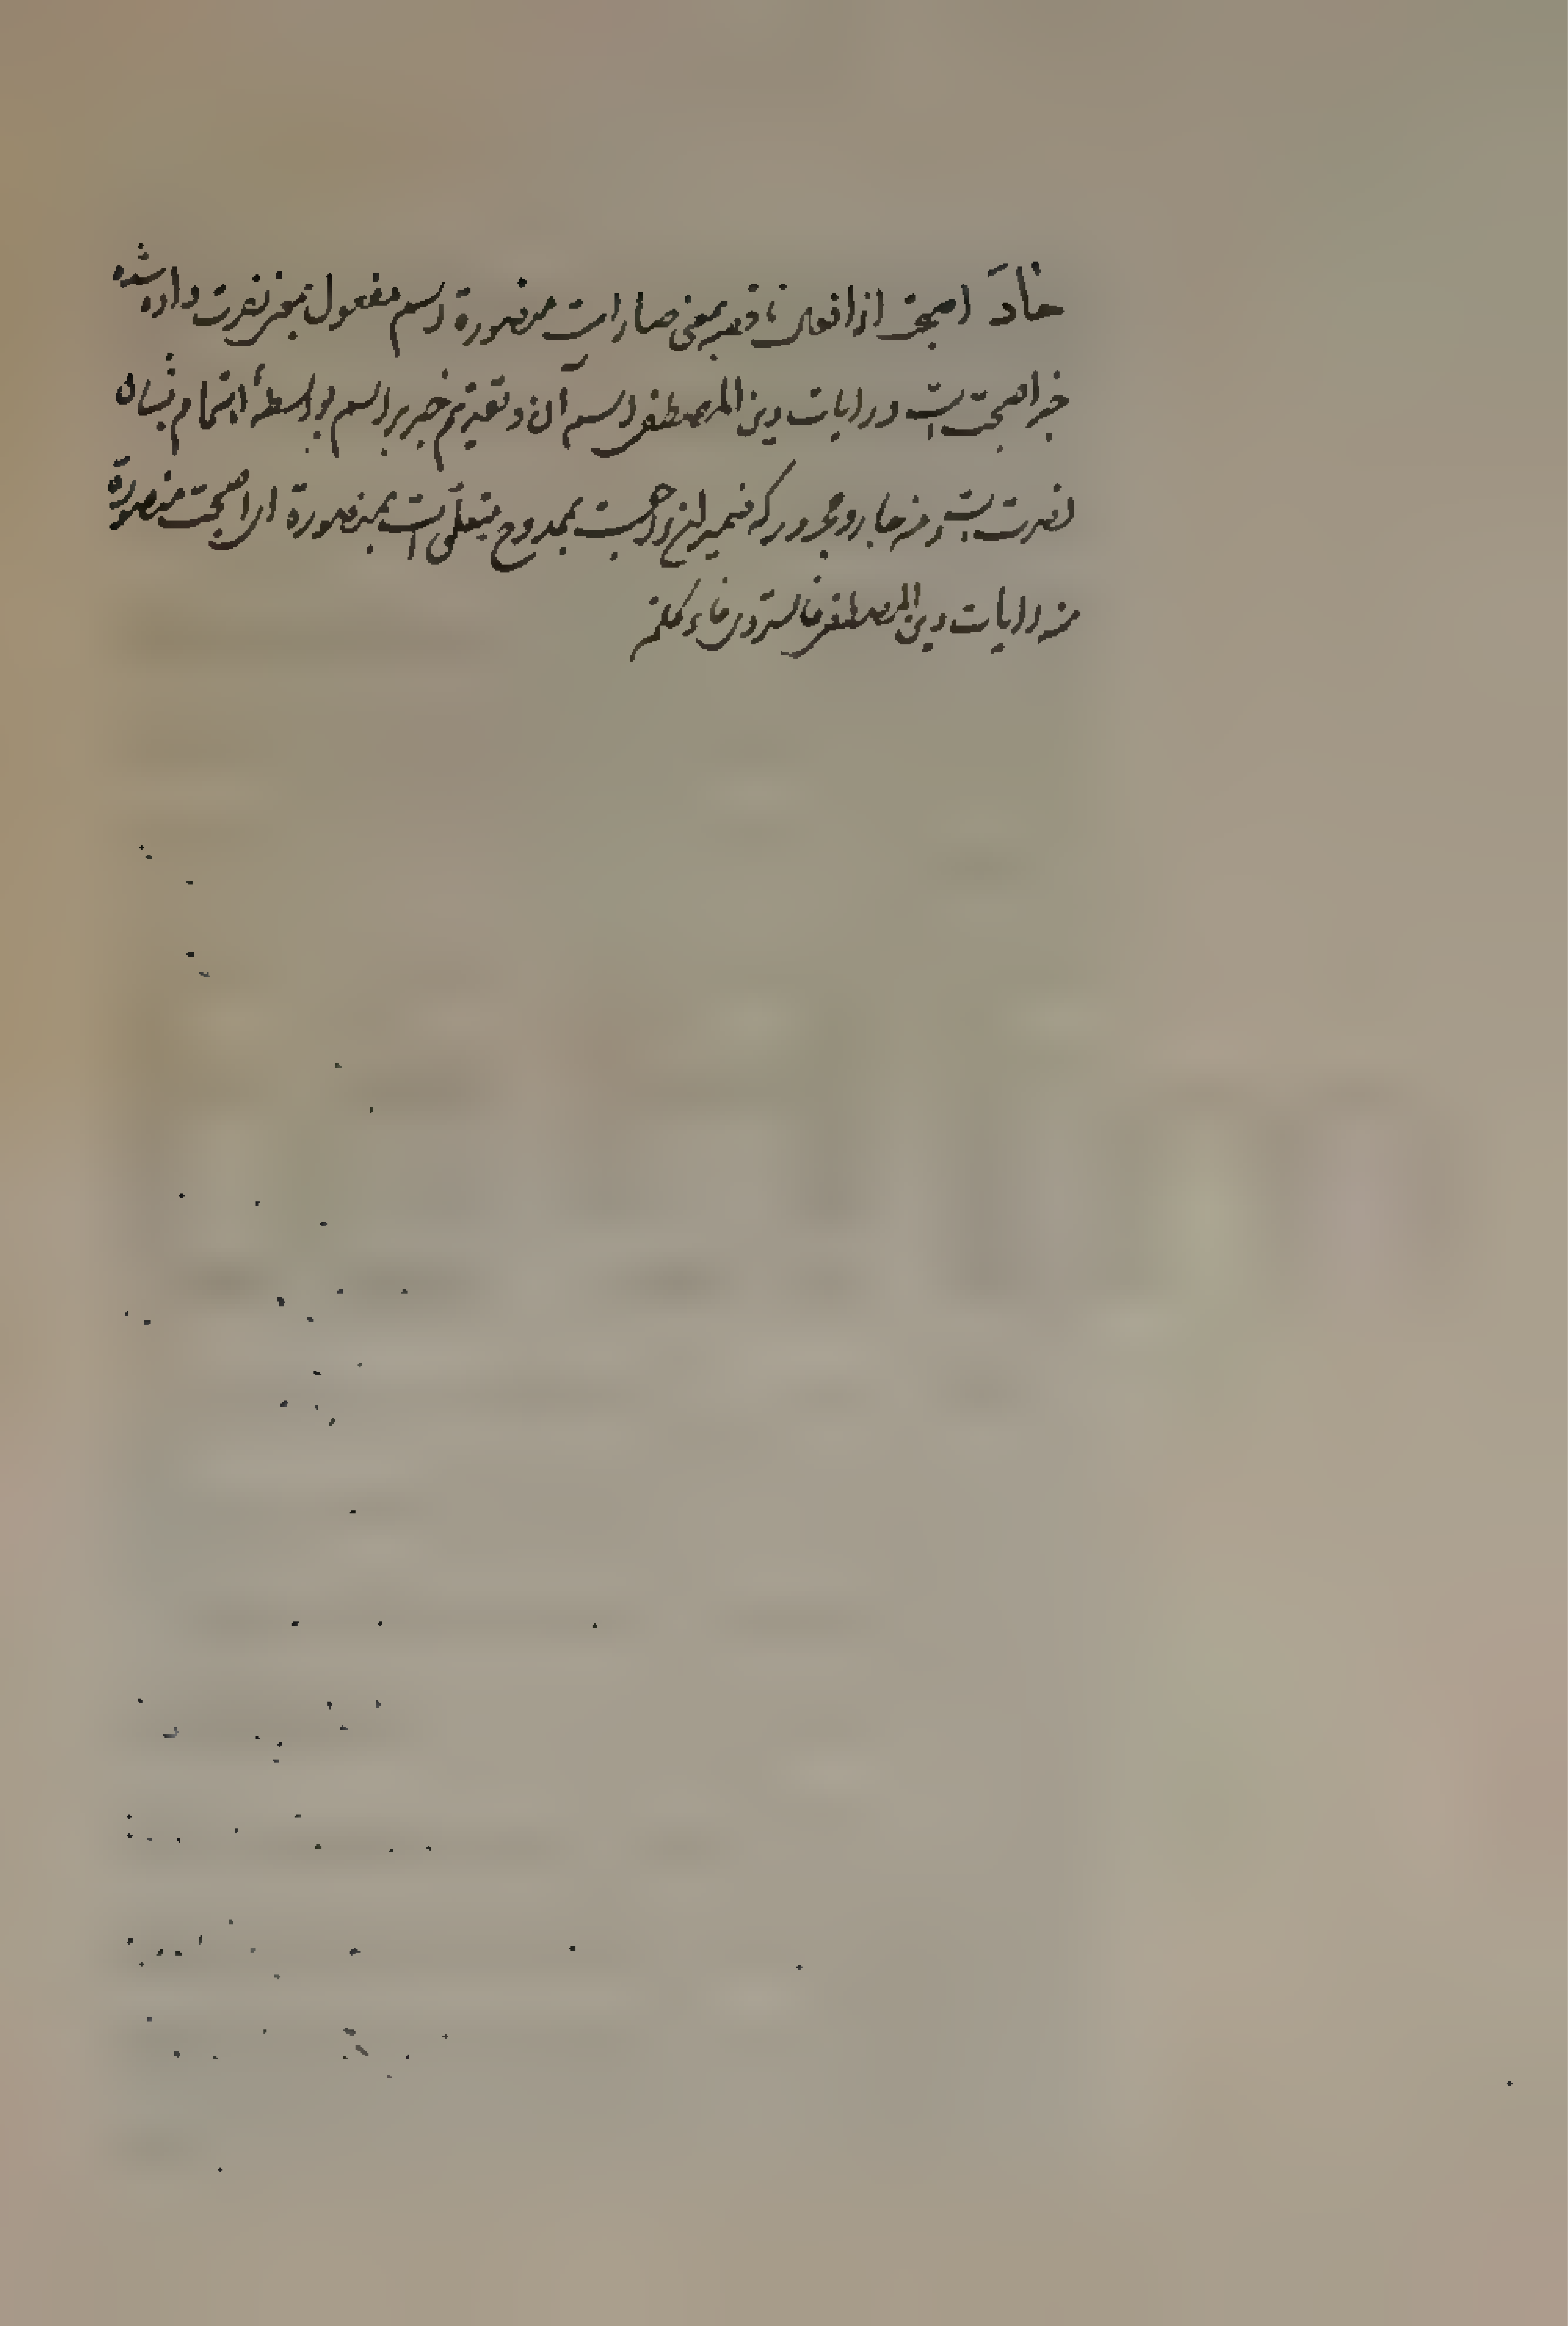 خاد اصبحت از افعال ناقصه بمعنی صارات منصورة اسم مفعول بمعنی نصرت داده شده
خبر اصبحت است و رایات دین المصطفی اسم آن و تقدیم خبر بر اسم بواسطهٔ اهتمام بشان
نصرت است و منه جار و مجرور که ضمیرش راجع است بممدوح متعلق است بمنصورة ای اصبحت منصورة
منه رایات دین المصطفی